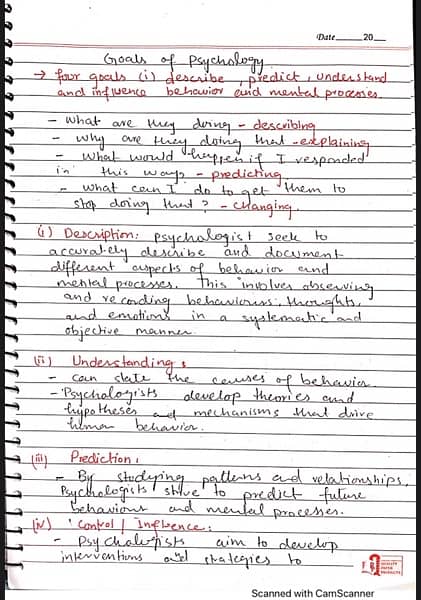 Date_____20__
Goals of Psychology
→ four goals (i) describe, predict, understand
and influence behavior and mental processes.
- what are they doing - describing
- why are they doing that - explaining
- what would happen if I responded
in this way - predicting
- what can I do to get them to
stop doing that? - changing
(i) Description: psychologist seek to
accurately describe and document
different aspects of behavior and
mental processes. This involves observing
and recording behaviours, thoughts,
and emotions in a systematic and
objective manner.
(ii) Understanding:
- can state the causes of behavior.
- Psychologists develop theories and
hypotheses and mechanisms that drive
human behavior.
(iii) Prediction:
- By studying patterns and relationships,
Psychologists strive to predict future
behaviour and mental processes.
(iv) Control / Influence:
- Psychologists aim to develop
interventions and strategies to
Scanned with CamScanner